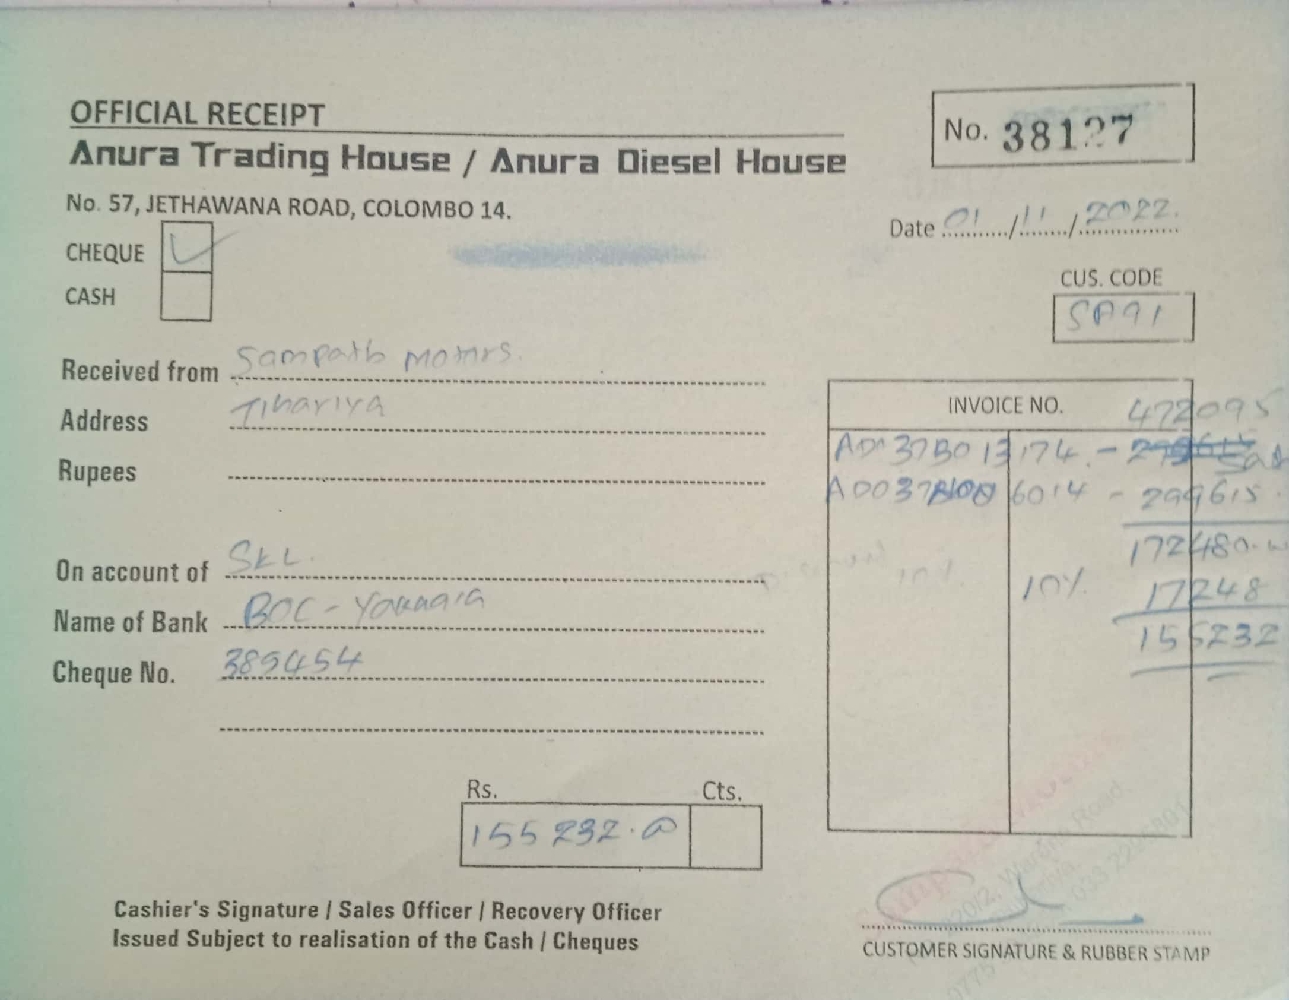 OFFICIAL RECEIPT
Anura Trading House / Anura Diesel House
No. 57, JETHAWANA ROAD, COLOMBO 14.
No. 38127
Date 01/11/2022.
CHEQUE
CASH
CUS. CODE
SA91
Received from Sampath Motors.
Address Tihariya
Rupees
INVOICE NO.
472095
37B013174 -
6014 - 299615
172480
10% 17248
155232
On account of
Name of Bank BOC -
Cheque No. 389454
Rs. Cts.
155 232.00
Cashier's Signature / Sales Officer / Recovery Officer
Issued Subject to realisation of the Cash / Cheques
CUSTOMER SIGNATURE & RUBBER STAMP